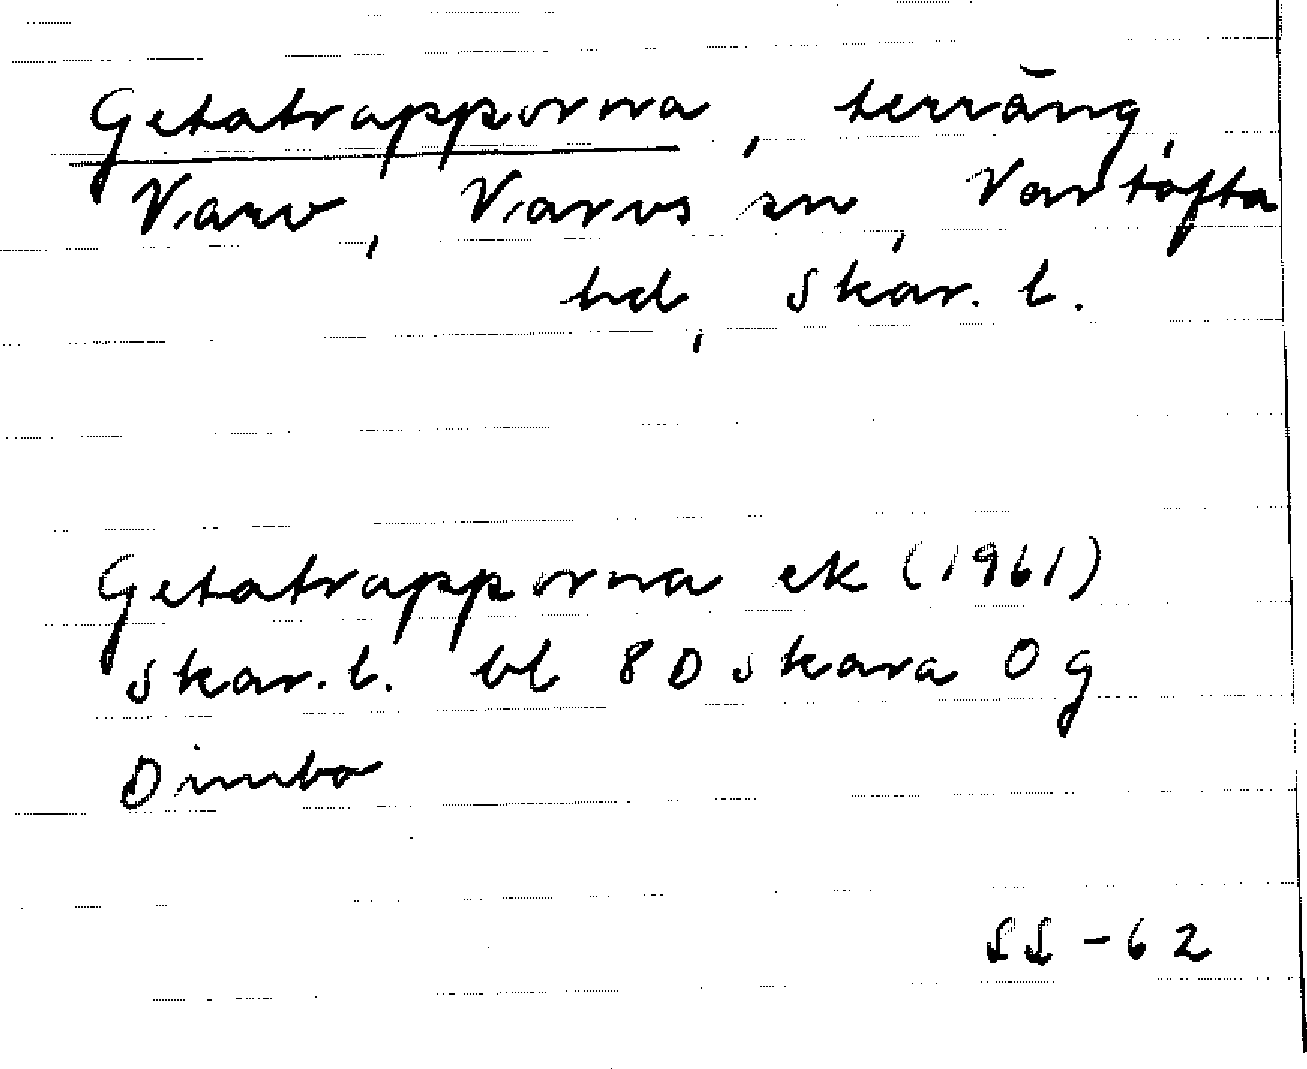 Getatrapporna, terräng,
Varv, Varvs sn, Vartofta
hd, Skar. l.
Getatrapporna ek (1961)
Skar. l. bl 8D Skara 0g
Dimbo
SS -62